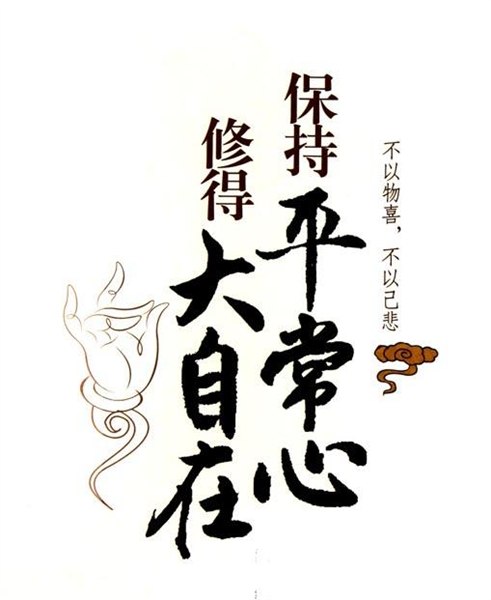 不以物喜，不以己悲
保持平常心
修得大自在